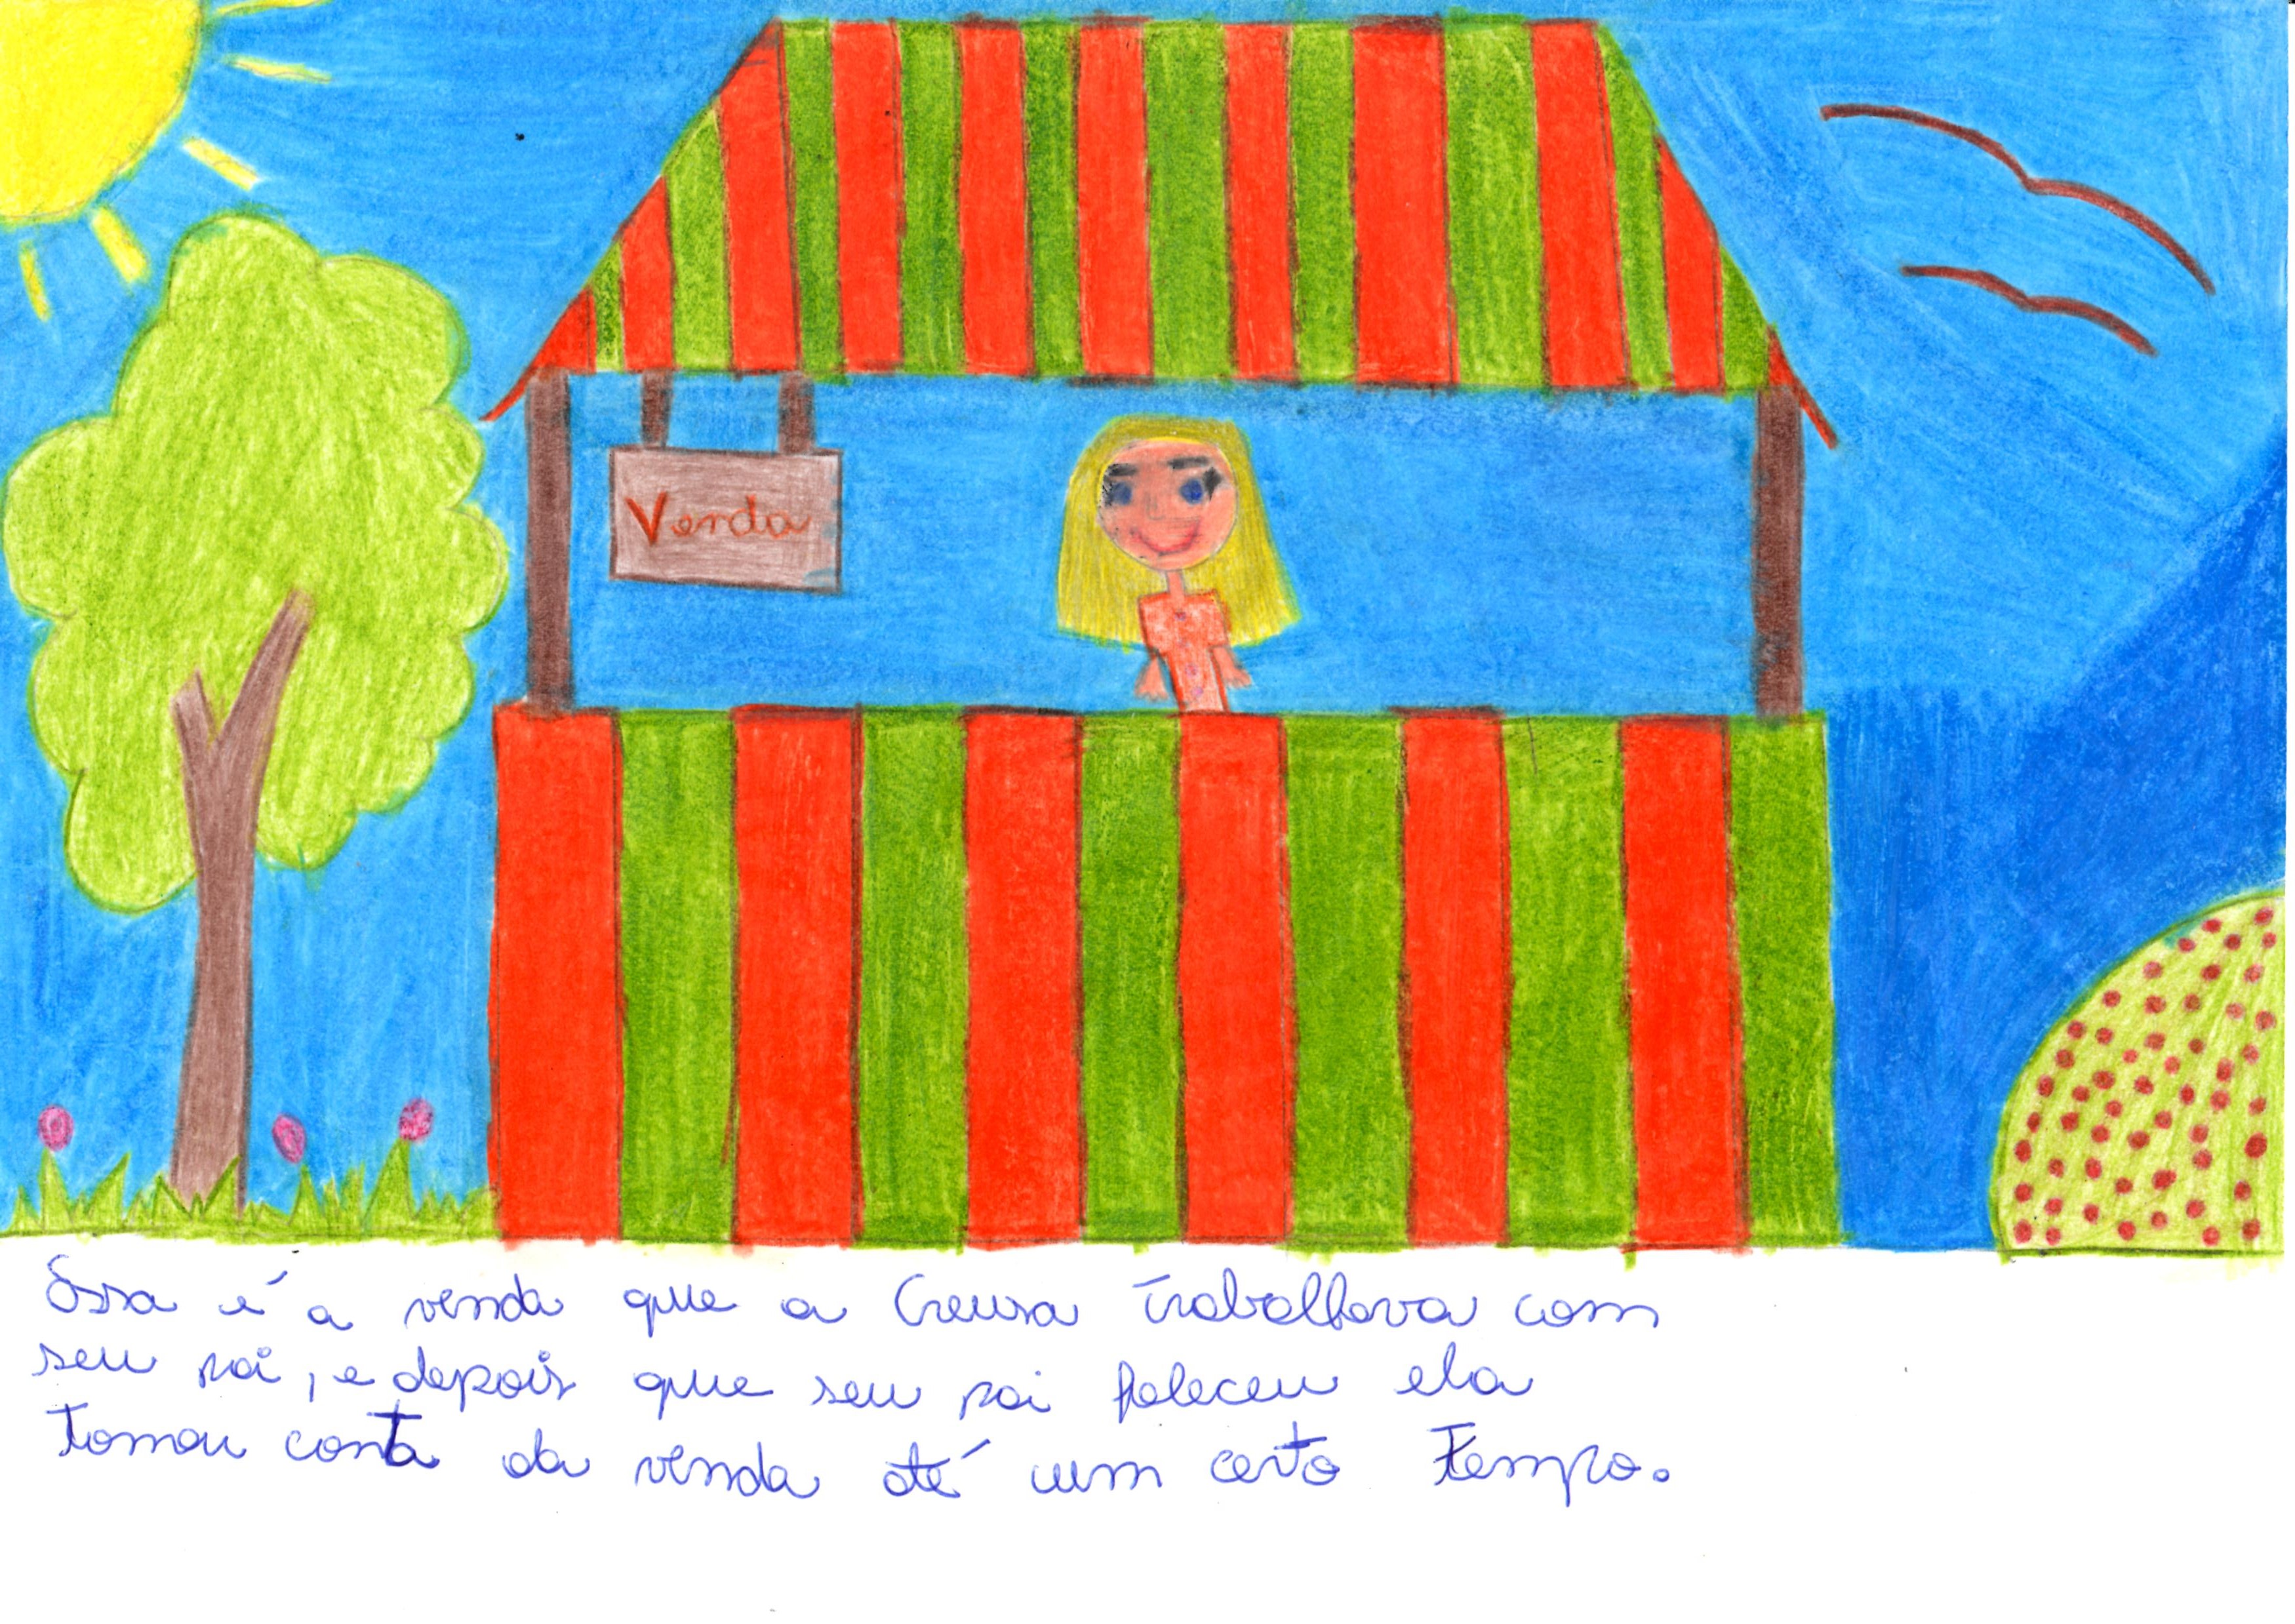 Venda
Essa é a venda que a Creusa trabalhava com
seu pai, e depois que seu pai faleceu ela
tomou conta da venda até um certo tempo.